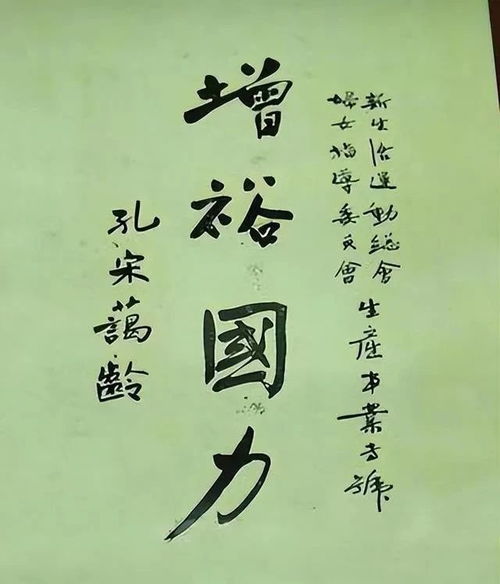 新生活運動總會
婦女指導委員會
生產事業専號
增裕國力
孔宋藹齡